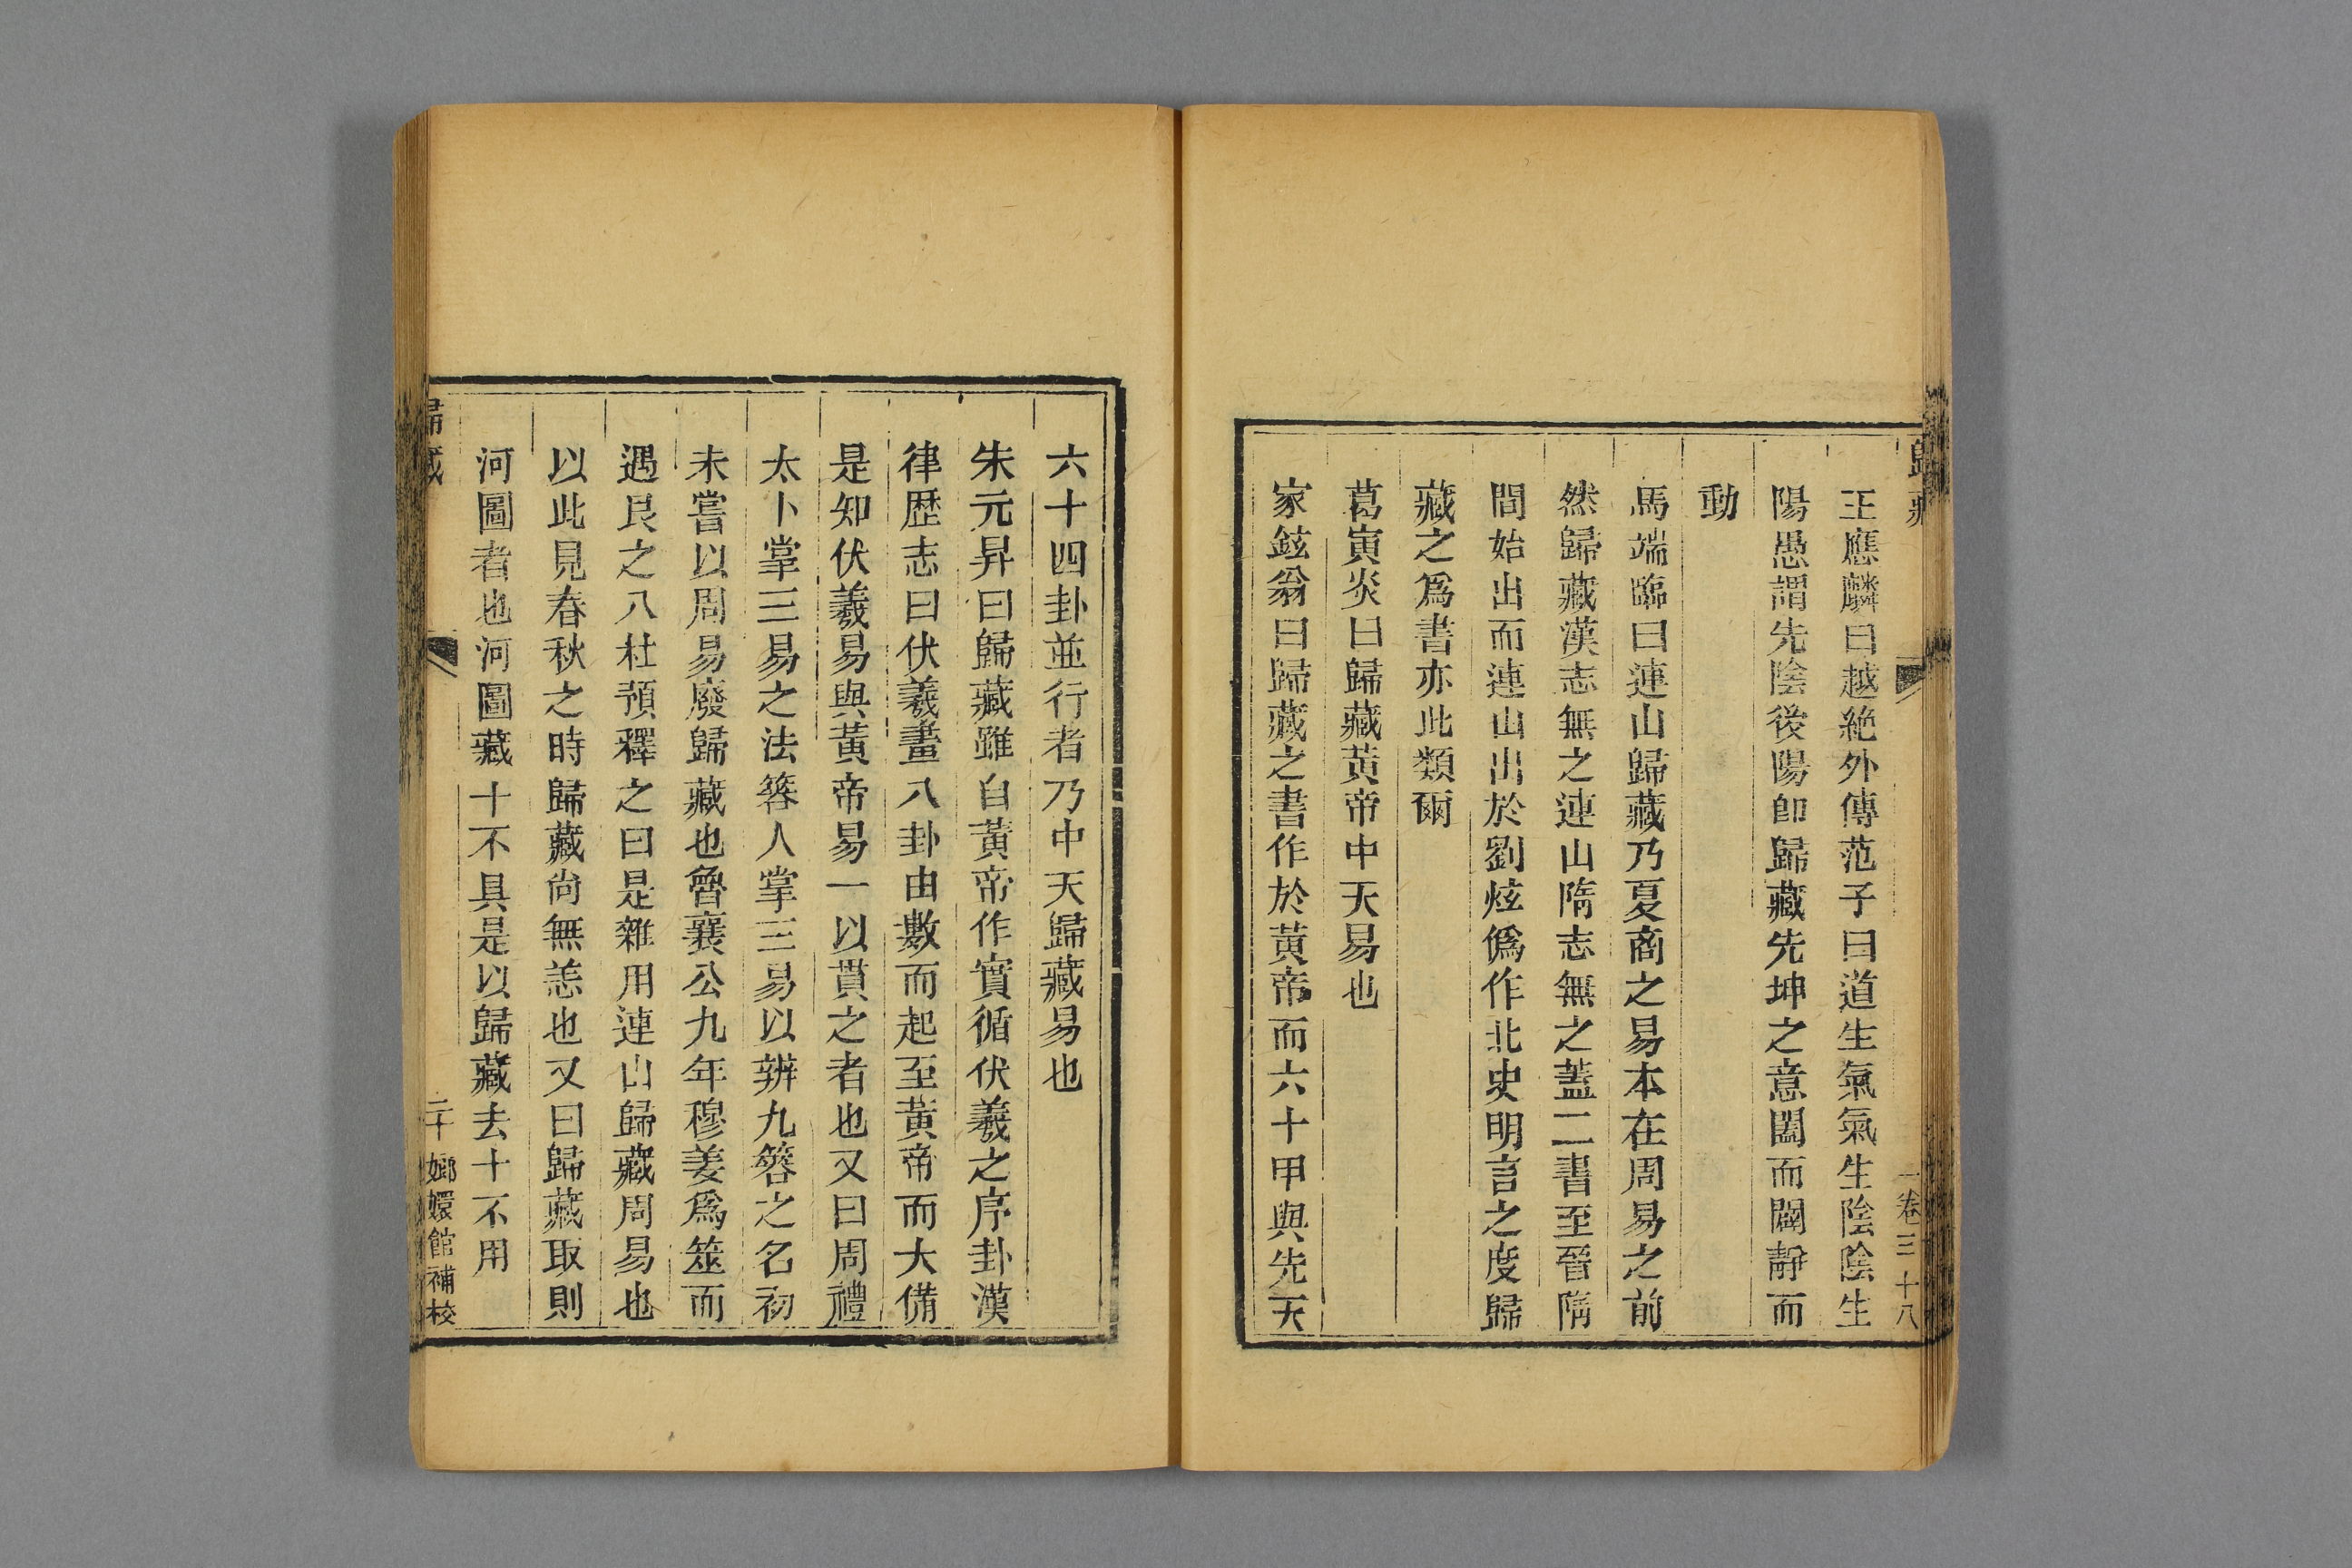 歸藏
一卷三十八
王應麟曰越絶外傳范子曰道生氣氣生陰陰生
陽愚謂先陰後陽卽歸藏先坤之意闔而闢靜而
動
馬端臨曰連山歸藏乃夏商之易本在周易之前
然歸藏漢志無之連山隋志無之蓋二書至晉隋
間始出而連山出於劉炫僞作北史明言之度歸
藏之爲書亦此類爾
葛寅炎曰歸藏黃帝中天易也
家鉉翁曰歸藏之書作於黃帝而六十甲與先天
六十四卦並行者乃中天歸藏易也
朱元昇曰歸藏雖自黃帝作實循伏羲之序卦漢
律歷志曰伏羲畫八卦由數而起至黃帝而大備
是知伏羲易與黃帝易一以貫之者也又曰周禮
太卜掌三易之法簭人掌三易以辨九簭之名初
未嘗以周易廢歸藏也魯襄公九年穆姜爲筮而
遇艮之八杜預釋之曰是雜用連山歸藏周易也
以此見春秋之時歸藏尙無恙也又曰歸藏取則
河圖者也河圖藏十不具是以歸藏去十不用
歸藏
二十
嫏嬛館補校